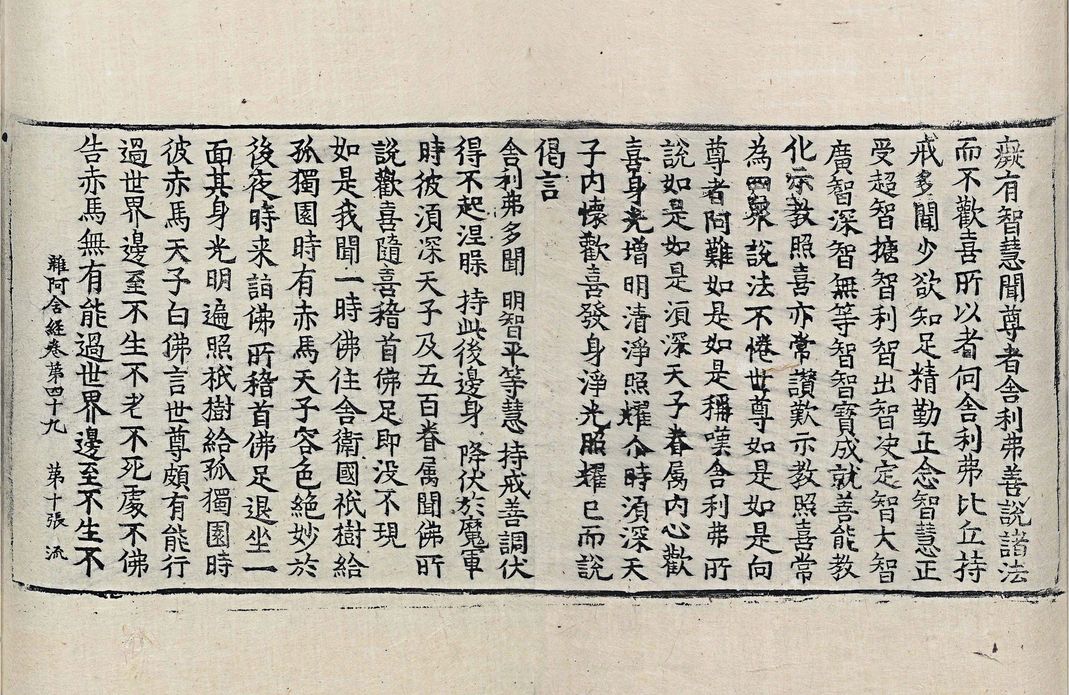 癡有智慧聞尊者舍利弗善說諸法
而不歡喜所以者何舍利弗比丘持
戒多聞少欲知足精勤正念智慧正
受超智揵智利智出智決定智大智
廣智深智無等智智寶成就善能教
化示教照喜亦常讃歎示教照喜常
為四衆說法不惓世尊如是如是向
尊者阿難如是如是稱嘆舍利弗所
說如是如是湏深天子眷属内心歡
喜身光增明清淨照耀尒時湏深天
子内懷歡喜發身淨光照耀已而說
偈言
舍利弗多聞 明智平等慧 持戒善調伏
得不起涅槃 持此後邊身 降伏於魔軍
時彼湏深天子及五百眷属聞佛所
說歡喜隨喜稽首佛足即没不現
如是我聞一時佛住舍衛國祇樹給
孤獨園時有赤馬天子容色絶妙於
後夜時来詣佛所稽首佛足退坐一
面其身光明遍照祇樹給孤獨園時
彼赤馬天子白佛言世尊頗有能行
過世界邊至不生不老不死處不佛
告赤馬無有能過世界邊至不生不
雜阿含経卷第四十九 第十張 流